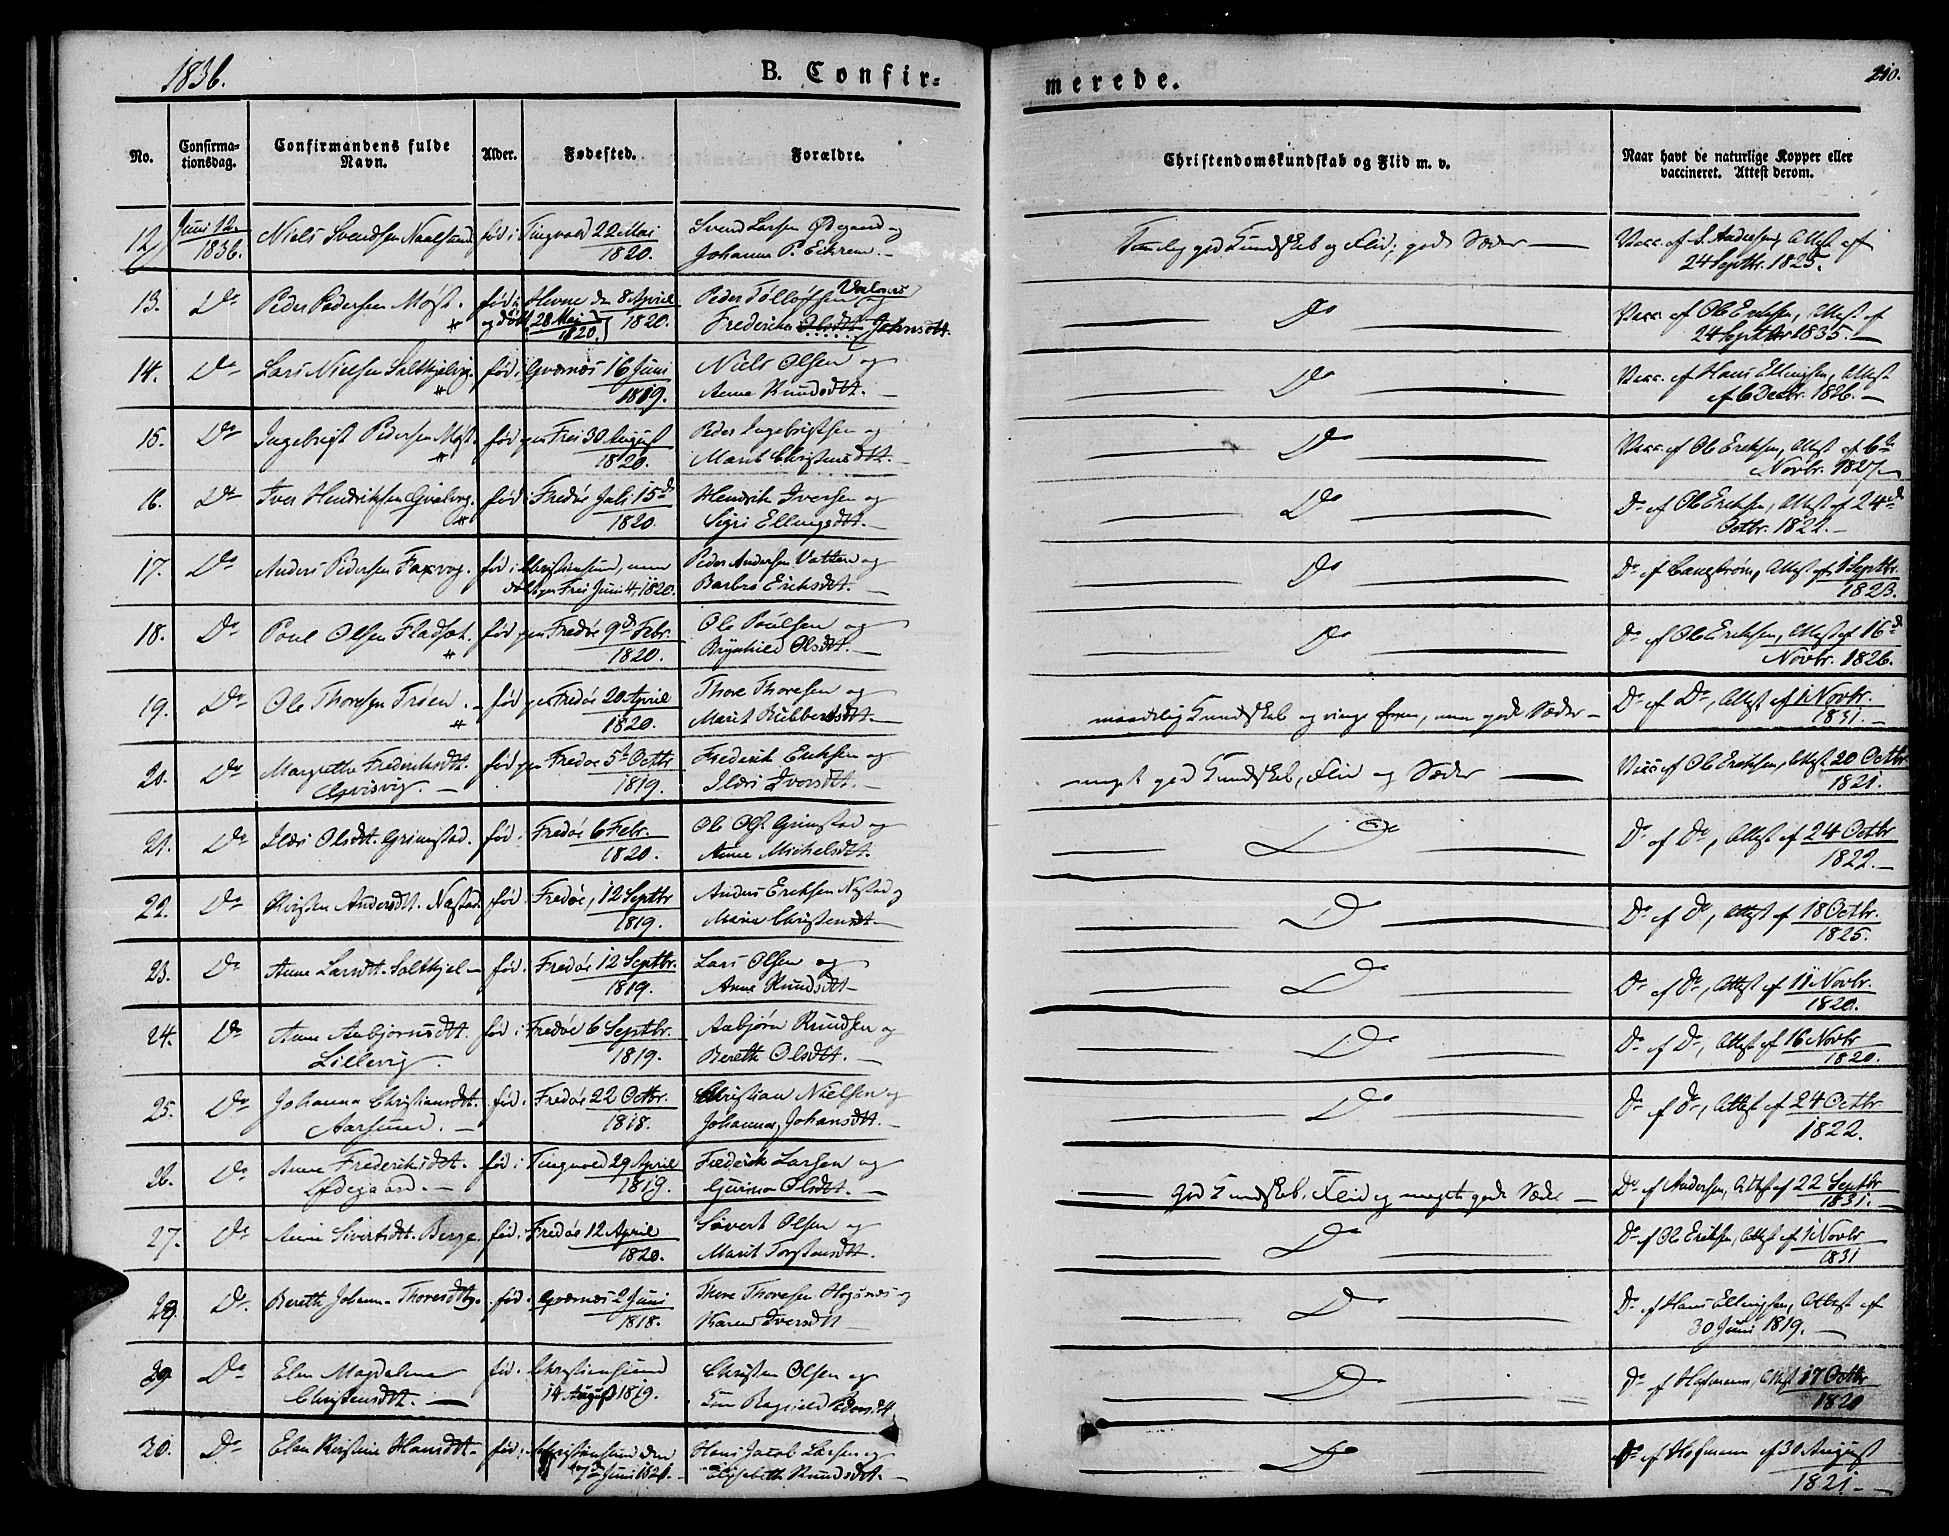 1836.
B. Confir-
merede.
210.
No.
Confirma-
tionsdag.
Confirmandens fulde
Navn.
Alder.
Fødested.
Forældre.
Christendomskundskab og Flid m. v.
Naar havt de naturlige Kopper eller
vaccineret. Attest derom.
12. Juni 12. 1836. Niels Svendsen Naalsund. fød i Tingvold 22 Mai 1820. Svend Larsen Ødegaard og Johanna P. Eikrem. Temlig god Kundskab og Flid; gode Sæder Vacc. af S. Andersen, Attest af 24 Septbr. 1825.
13. Do Peder Pedersen Møst. fød i Hevne den 8 April 1820. og døbt 28 Mai 1820. Peder Tølløfsen og Frederikke Johnsdtt. Do Vacc. af Ole Eriksen, Attest af 24 Septbr 1835.
14. Do Lars Nielsen Saltkjelvig. fød i Qværnes 16 Juni 1819. Niels Olsen og Anne Knudsdtt. Do Vacc. af Hans Ellingsen, Attest af 6 Decbr. 1826.
15. Do Ingebrigt Pedersen Møst. fød paa Frei 30 August 1820. Peder Ingebrigtsen og Marit Christensdtt. Do Vacc. af Ole Eriksen, Attest af 6te Novbr. 1827
16. Do Iver Hendriksen Qvalvog. fød i Fredøe Juli 15de 1820. Hendrik Iversen og Sigri Ellingsdtt. Do Do af Ole Eriksen, Attest af 24de Octbr. 1822.
17. Do Anders Pedersen Faxvog. fød i Christiansund, men døbt paa Frei Juni 4, 1820. Peder Andersen Vatten og Barbro Eriksdtt. Do Do af Langstrøm, Attest af 1 Septbr. 1823.
18. Do Poul Olsen Fladsæt. fød paa Fredøe 9de Febr. 1820. Ole Poulsen og Brynhild Olsdtt. Do Do af Ole Eriksen, Attest af 16de Novbr. 1826.
19. Do Ole Thoresen Trøen. fød paa Fredøe 20 April 1820. Thore Thoresen og Marit Bribbertsdtt. maadelig Kundskab og ringe Evner, men gode Sæder Do af Do, Attest af 1 Novbr. 1831.
20. Do Margrethe Frederiksdtt. Qvisvig. fød paa Fredøe 5te Octbr 1819. Frederik Eriksen og Ildri Iversdtt. meget god Kundskab, Flid og Sæder Vacc af Ole Eriksen, Attest 20 Octbr 1821.
21. Do Ildri Olsdtt. Grimstad. fød i Fredøe 6 Febr. 1820. Ole Ols. Grimstad og Anne Michelsdtt. Do Do af Do, Attest af 24 Octbr 1822.
22. Do Kristen Andersdtt. Næstad. fød i Fredøe, 12 Septbr 1819. Anders Eriksen Næstad og Marie Christensdtt. Do Do af Do, Attest af 18 Octbr. 1825.
23. Do Anne Larsdtt. Saltkjel fød i Fredøe 12 Septbr. 1819. Lars Olsen og Anne Knudsdtt Do Do af Do, Attest af 11 Novbr. 1820.
24. Do Anne Asbjørnsdtt. Lillevig. fød i Fredøe 6 Septbr. 1819. Asbjørn Knudsen og Bereth Olsdtt. Do Do af Do, Attest af 16 Novbr 1820.
25. Do Johanna Christiansdtt. Aarsund. fød i Fredøe 22 Octbr. 1818. Christian Nielsen og Johanna Johansdtt. Do Do af Do, Attest af 24 Octbr. 1822.
26. Do Anne Frederiksdtt. Ødegaard. fød i Tingvold 29 April 1819. Frederik Larsen og Gurina Olsdtt. god Kundskab, Flid og meget gode Sæder Do af Andersen, Attest af 22 Septbr 1831.
27. Do Anne Sivertsdtt. Berge. fød i Fredøe 12 April 1820. Sivert Olsen og Marit Torstensdtt. Do Do af Ole Eriksen, Attest af 1 Novbr 1831
28. Do Bereth Johanna Thoresdtt. fød i Qværnes 2 Juni 1818. Thore Thoresen Hogsnes og Karen Iversdtt Do Do af Hans Ellingsen, Attest af 30 Juni 1819.
29. Do Elen Magdalena Christensdtt. fød i Christiansund 14 August 1819. Christen Olsen og Ragnild Pedersdtt. Do Do af Hofmann, Attest 17 Octbr 1820
30. Do Elen Kirstine Hansdtt fød i Christiansund den 7de Juni 1821. Hans Jacob Larsen og Elisabeth Knudsdtt. Do Do af Hofmann af 30 August 1821.